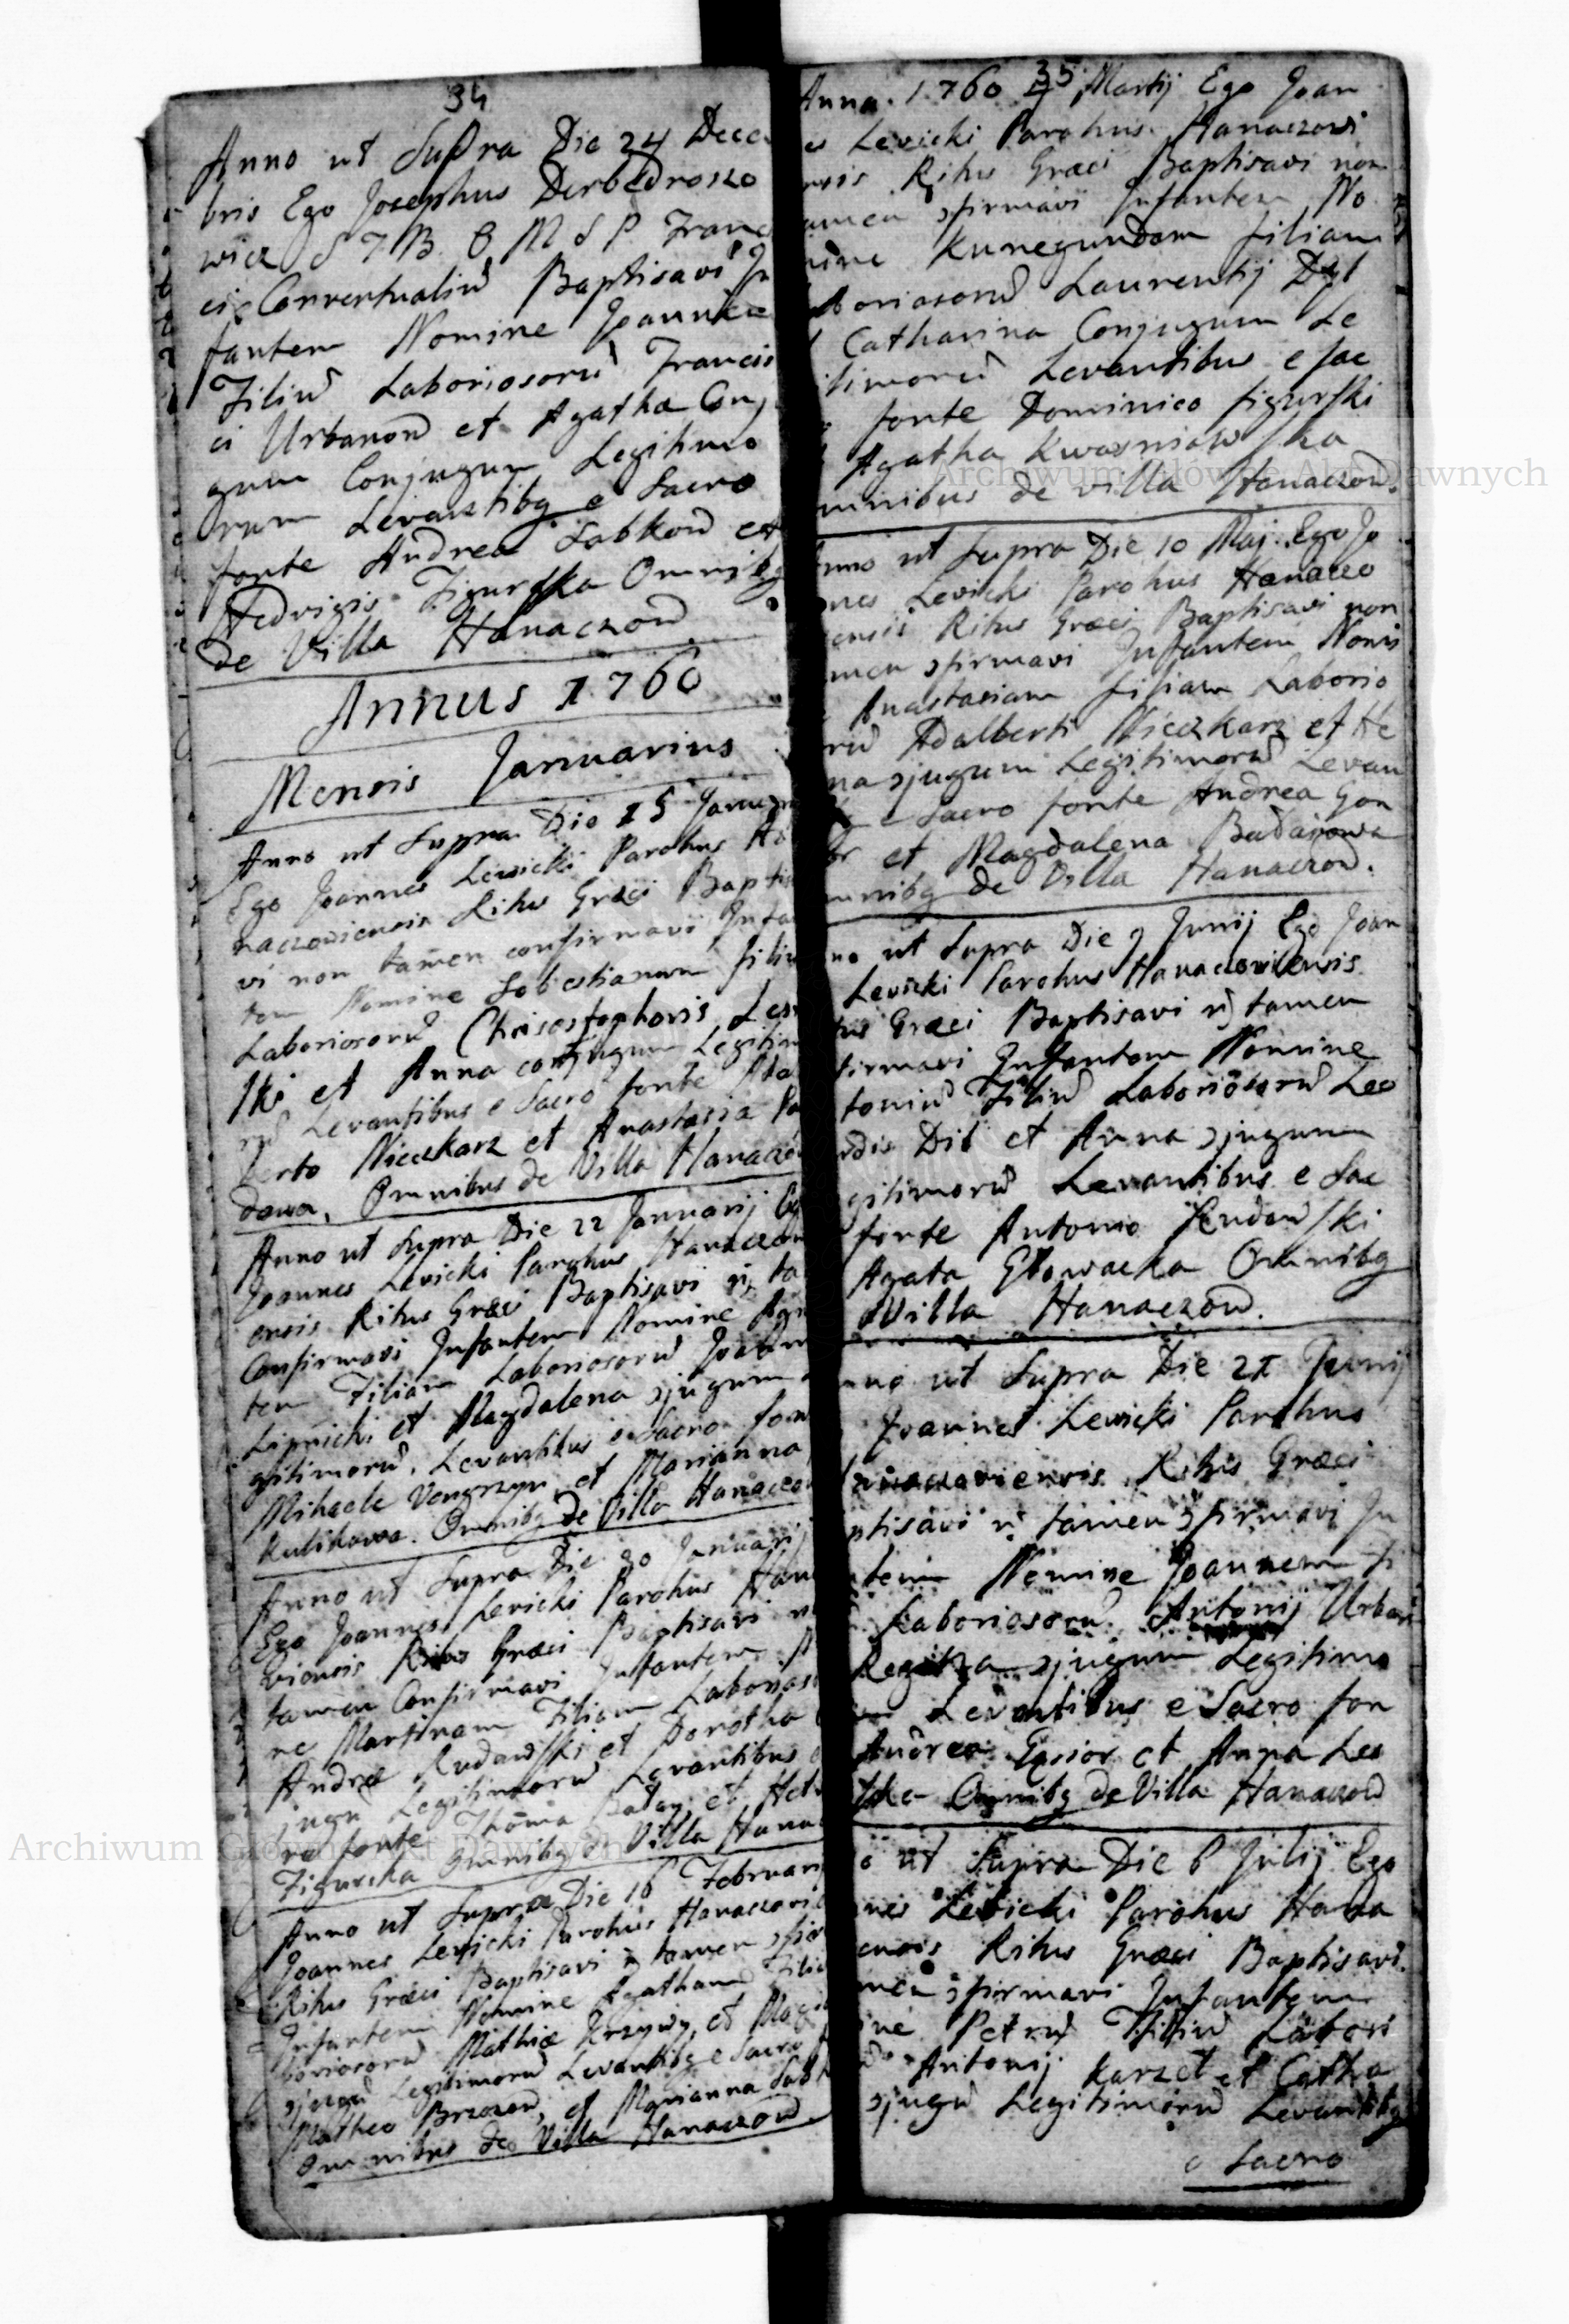 34
Anno ut Supra Die 24 Dece
bris Ego Josephus Derbedroszo
wicz S T B O M S P Franc
cis Conventualiū Baptisavi In
fantem Nomine Joannem
Filiū Laboriosorū Francis
ci Urbanow et Agatha Conj
gum Conjugum Legitimo
rum Levantibg e Sacro
fonte Andrea Sabkow et
Hedvigis Figurska Omnibg
de Villa Hanaczow
Annus 1760
Mensis Januarius
Anno ut Supra Die 15 Janua
Ego Joannes Lewicki Parohus Ha
naczoviensis Ritus Græci Baptisa
vi non tamen confirmavi Infa
tem Nomine Sobestianum filiu
Laboriosorū Chrisostophoris Les
ski et Anna conjugum Legitim
rū Levantibus e Sacro fonte Ada
lerto Nieczkarz et Anastasia
dowa, Omnibus de Villa Hanaczow
Anno ut Supra Die 22 Januarij Eg
Joannes Levicki Parohus Hanaczow
ensis Ritus Græci Baptisavi n̄ ta
Confirmavi Infantem Nomine Agn
tem Filiam Laboriosorū Joan
Lipnicki et Magdalena ɔjugum
gitimorū, Levantibus e Sacro fon
Mihaele Vengrzyn et Marianna
Kulikowa. Omnibg de Villa Hanaczo
Anno ut Supra Die 30 Januarij
Ego Joannes Levicki Parohus Han
viensis Ritus Græci Baptisavi n
tamen Confirmavi Infantem
ne Martinam Filiam Laborios
Andreæ Rudawski et Dorotha
jugū Legitimorū Levantibus
ro fonte Thoma Batay, et Hed
Figurska Omnibg de Villa Hana
Anno ut Supra Die 16 Februarij
Joannes Levicki Parohus Hanaczovi
Ritus Græci Baptisavi n̄ tamen ɔfir
Infantem Nomine Agatham Filia
boriosorū Mathiæ Krzywy, et Magd
ɔjugū Legitimorū Levantibg e Sacro
Matheo Brzozow, et Marianna Sab
Omnibus de Villa Hanaczow
35
Anno. 1760 Martij Ego Joan
es Levicki Parohus Hanaczowi
nsis Ritus Græci Baptisavi non
amen ɔfirmavi Infantem No
mine Kunegundam filiam
aboriosorū Laurentij Dyl
Catharina Conjugum Le
itimorū Levantibus e sac
fonte Dominico figurski
Agatha Kwasniowska
mnibus de villa Hanaczow.
nno ut Supra Die 10 Maj. Ego Jo
nes Levicki Parohus Hanaczo
ensis Ritus Græci Baptisavi non
men ɔfirmavi Infantem Nomi
Anastasiam filiam Laborio
rū Adalberti Nieczkarz et He
na ɔjugum Legitimorū Levan
e Sacro fonte Andrea Gon
or et Magdalena Badarowa
mnibg de Villa Hanaczow.
no ut Supra Die 9 Junij Ego Joan
Levicki Parohus Hanaczoviensis
tus Græci Baptisavi n̄ tamen
firmavi Infantem Nomine
toniū Filiū Laboriosorū Leo
rdis Dil et Anna ɔjugum
gitimorū Levantibus e Sac
fonte Antonio Rudawski
Agata Głowacka Omnibg
Villa Hanaczow.
no ut Supra Die 21 Junij
Joannes Levicki Parohus
naczoviensis Ritus Græci
ptisavi n̄ tamen ɔfirmavi In
tem Nomine Joannem fi
Laboriosorū Antonij Urban
Regina ɔjugum Legitimo
Levantibus e Sacro fon
Andrea Gasior et Anna Les
ska Omnibg de Villa Hanaczow
o ut Supra Die 6 Julij Ego
nes Levicki Parohus Hana
ensis Ritus Græci Baptisavi
men ɔfirmavi Infantem
ine Petrū Filiū Labori
Antonij Karzet et Catha
ɔjugū Legitimorū Levantibg
e Sacro
Archiwum Główne Akt Dawnych
Archiwum Główne Akt Dawnych